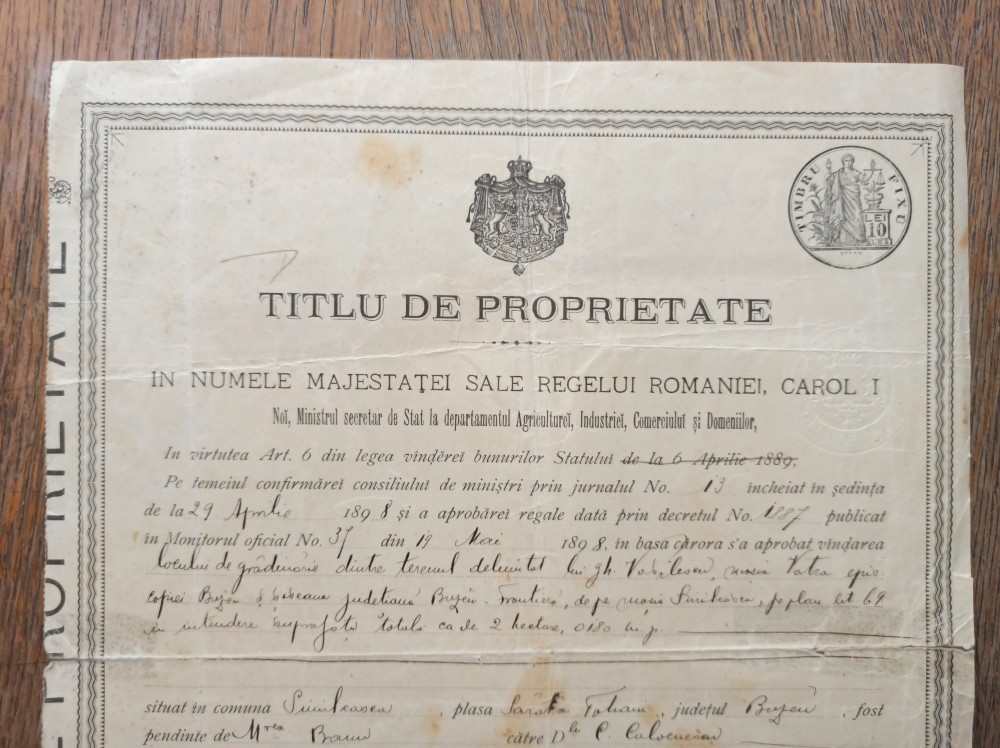 TIMBRU FIXU
LEI
10
TITLU DE PROPRIETATE
IN NUMELE MAJESTAȚEI SALE REGELUI ROMANIEI, CAROL I
Noĭ, Ministrul secretar de Stat la departamentul Agricultureĭ, Industrieĭ, Comerciuluĭ și Domeniilor,
In virtutea Art. 6 din legea vîndĕreĭ bunurilor Statuluĭ de la 6 Aprilie 1889,
Pe temeiul confirmăreĭ consiliuluĭ de miniștri prin jurnalul No. 13 încheiat în ședința
de la 29 Aprilie 1898 și a aprobăreĭ regale dată prin decretul No. 1887 publicat
în Monitorul oficial No. 37 din 19 Mai 1898, în basa cărora s'a aprobat vîndarea
locului de grădinărie dintre terenul delimitat lui Gh. Vasilescu, moșia Vatra epis
copiei Buzĕu județiană Buzĕu de pe moșia Simileasca, pe plan lit 69
în întindere suprafață totală ca de 2 hectare, 0180 m. p.
situat în comuna Simileasca, plasa Sărata, județul Buzĕu, fost
pendinte de M-rea Banu către D-lu C.
PROPRIETATE